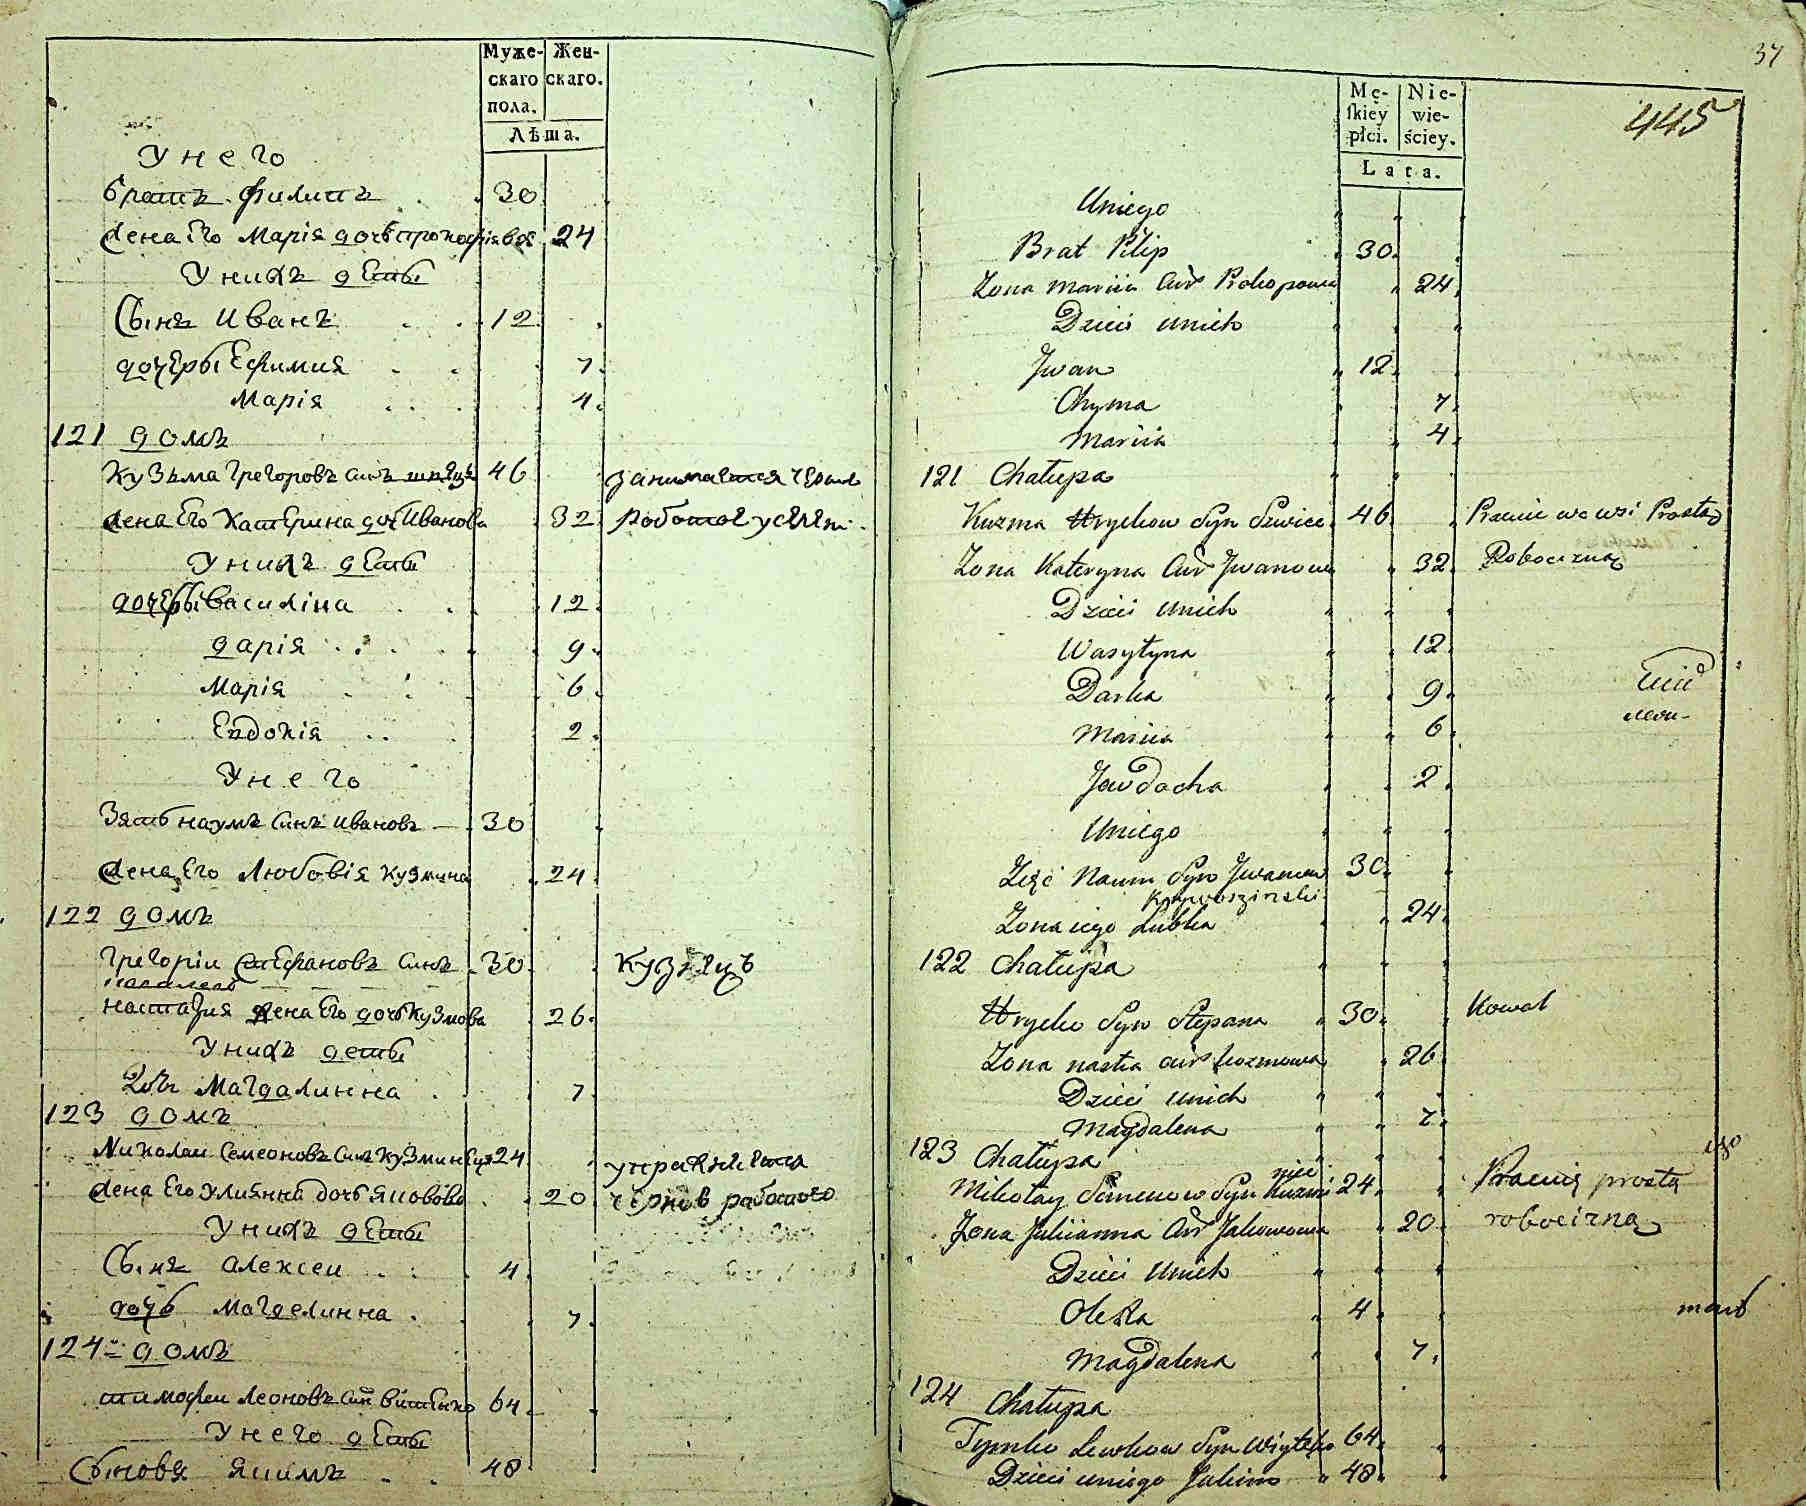 Муже-
скаго
пола.
Жен-
скаго.
Лѣта.
У него
братъ Филипъ 30
жена Его Марія дочь прокофіева 24
У нихъ дѣти
Сынъ Иванъ 12
дочери Ефимия 7
Марія 4
121 домъ
Кузьма Грегоровъ синъ швецъ 46 занимается черною
жена Его Катерина доч Иванова 32 работою
У нихъ дѣти
дочери Василіна 12
дарія 9
Марія 6
Евдокія 2
У него
Зять наумъ синъ Ивановъ 30
жена Его Любовія Кузмина 24
122 домъ
Грегоріи Стефановъ синъ 30 Кузнецъ
настазия жена Его дочь Кузмова 26
У нихъ дети
Дочь Магдалинна 7
123 домъ
Николаи Семеоновъ синъ 24
жена Его Улиянна дочь яковова 20 чернов работою
У нихъ дѣти
Сынъ Алексеи 4
дочь Магделинна 7
124 домъ
тимофеи Леоновъ син 64
У него дѣти
Сыновя якимъ 48
37
445
Mę-
skiey
płci.
Nie-
wie-
ściey.
Lata.
Uniego
Brat Pilip 30
Zona Mariia Cur Prokopowa 24
Dzieci unich
Jwan 12
Chyma 7
Mariia 4
121 Chałupa
Kuzma Hryckow Syn Szwiec 46 we wsi Prostą
Zona Kateryna Cur Jwanowa 32 Robocizną
Dzieci unich
Wasyłyna 12
Darka 9
Mariia 6
Jewdocha 2
Uniego
Zęć Naum Syn Jwanow 30
Zona iego Lubka 24
122 Chałupa
Hrycko Syn Stepana 30 Kowal
Zona nastia cur Kuzmowa 26
Dzieci unich
Magdalena 7
123 Chałupa
Mikołay Semenow Syn 24 prostą
Zona Juliianna Cur Jakowowa 20 robocizną
Dzieci Unich
Oleksa 4
Magdalena 7
124 Chałupa
Tymko Lewkow Syn 64
Dzieci uniego Jakim 48